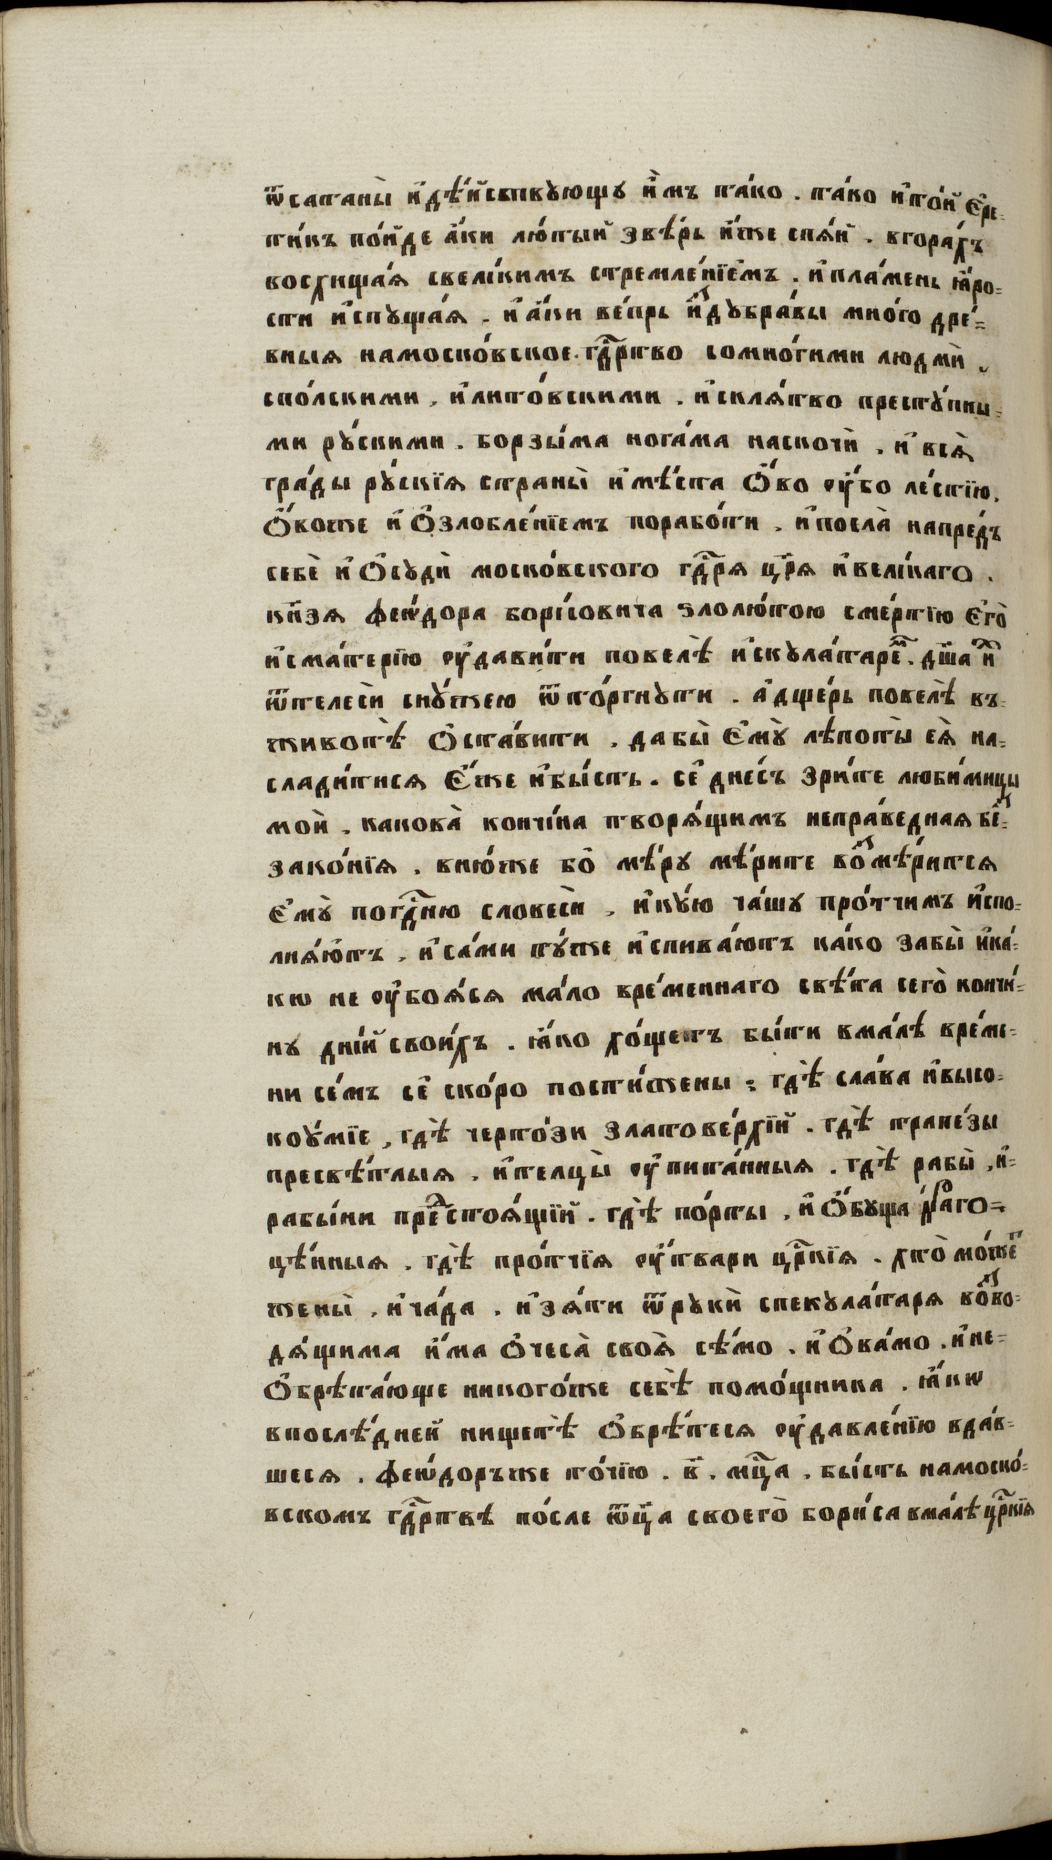 ѿсатаны̀ и҆дѣ́йствꙋющꙋ и҆̀мъ та́ко . та́ко и҆то́й є҆ре-
ти́къ по́йде а҆́ки лю́тый звѣ́рь и҆́же спѧ́й . вгора́хъ
восхища́ѧ свели́кимъ стремле́нїемъ . и҆пла́мень ꙗ҆́ро=
сти и҆спꙋща́ѧ . и҆а҆́ки ве́прь и҆ꙁ̾дꙋбра́вы мно́го дре́=
вныѧ намоско́вское гдⷭ҇рьтво сомно́гими людмѝ .
спо́лскими , и҆лито́вскими . и҆склѧ́тво престꙋ́пны=
ми рꙋ́скими . борзы́ма нога́ма наскочѝ . и҆ всѧ̀
гра́ды рꙋ́скїѧ страны̀ и҆мѣ́ста ѻ҆́во ᲂу҆́бо ле́стїю .
ѻ҆́воже и҆ ѻ҆злобле́нїемъ порабо́ти . и҆посла̀ напре́дъ
себѐ и҆ ѻ҆сꙋдѝ моско́вского гдⷭ҇рѧ цр҃ѧ и҆вели́каго .
кн҃зѧ ѳеѡ́дора бори́совича ѕлолю́тою сме́ртїю є҆гѡ̀
и҆сма́терїю ᲂу҆дави́ти повелѣ̀ и҆скꙋла́тареⷨ . дш҃а и҆ⷯ
ѿтелесѝ снꙋ́жею ѿто́ргнꙋти . а҆дще́рь повелѣ̀ въ-
животѣ̀ ѻ҆ста́вити . дабы̀ є҆мꙋ̀ лѣпоты̀ еѧ̀ на=
слади́тисѧ є҆́же и҆бы́сть . сѐ дне́сь зри́те люби́мицы
моѝ . какова̀ кончи́на творѧ́щимъ непра́веднаѧ беⷥ=
зако́нїѧ . внюже бо̀ мѣ́рꙋ мѣ́рите воⷥмѣ́ритсѧ
є҆мꙋ̀ погдⷭ҇ню словесѝ . и҆кꙋ́ю ча́шꙋ про́тчимъ и҆спо-
лнѧ́ютъ . и҆са́ми тꙋ́же и҆спива́ютъ ка́ко забы̀ и҆ка́=
кѡ не ᲂу҆боѧ́сѧ ма́ло вре́меннаго свѣ́та сего̀ кончи́=
нꙋ дні́й свои́хъ . ꙗ҆́ко хо́щетъ бы́ти вма́лѣ вре́ме=
ни се́мъ сѐ ско́ро пости́жены ; гдѣ̀ сла́ва и҆высо=
коꙋ́мїе , гдѣ̀ черто́зи златове́рхїй . гдѣ̀ трапе́зы
пресвѣ́тлыѧ . и҆телцы̀ ᲂу҆пита́нныѧ . гдѣ̀ рабы̀ , и҆=
рабы́ни преⷣстоѧ́щїй . гдѣ̀ по́рты , и҆ ѻ҆́бꙋща драго=
цѣ́нныѧ . гдѣ̀ про́тчїѧ ᲂу҆́твари цр҃кїѧ . хто̀ мо́жеⷮ
жены̀ , и҆ча́да . и҆зѧ́ти ѿрꙋкѝ спекꙋла́тарѧ воⷥво=
дѧ́щима и҆́ма ѻ҆чеса̀ своѧ̀ сѣ́мо . и҆ ѻ҆ва́мо . и҆не=
ѻ҆брѣта́юще никого́же себѣ̀ помо́щника . ꙗ҆́кѡ
впослѣ́дней нищетѣ̀ ѻ҆брѣ́тесѧ ᲂу҆давле́нїю вда́в=
шесѧ . ѳеѡ́доръже то́чїю . в҃ . мцⷭ҇а . бы́сть намоско́=
вском гдⷭ҇рьтвѣ по́сле ѿц҃а своего̀ бори́са вма́лѣ црⷭ҇кїѧ